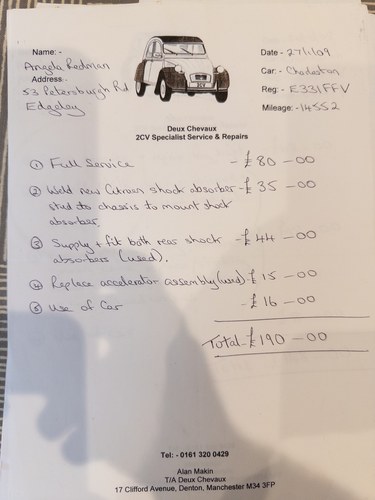 Name: -
Angela Redman
Address
53 Petersburgh Rd
Edgeley
Date - 27/1/09
Car: - Charleston
Reg: - E331FFV
Mileage: -14552
2CV
Deux Chevaux
2CV Specialist Service & Repairs
① Full Service - £80-00
② Weld new Citroen shock absorber - £35-00
stud to chassis to mount shock
absorber.
③ Supply + fit both rear shock - £44-00
absorbers (used).
④ Replace accelerator assembly (used) £15-00
⑤ Use of Car - £16-00
Total - £190-00
Tel: - 0161 320 0429
Alan Makin
T/A Deux Chevaux
17 Clifford Avenue, Denton, Manchester M34 3FP